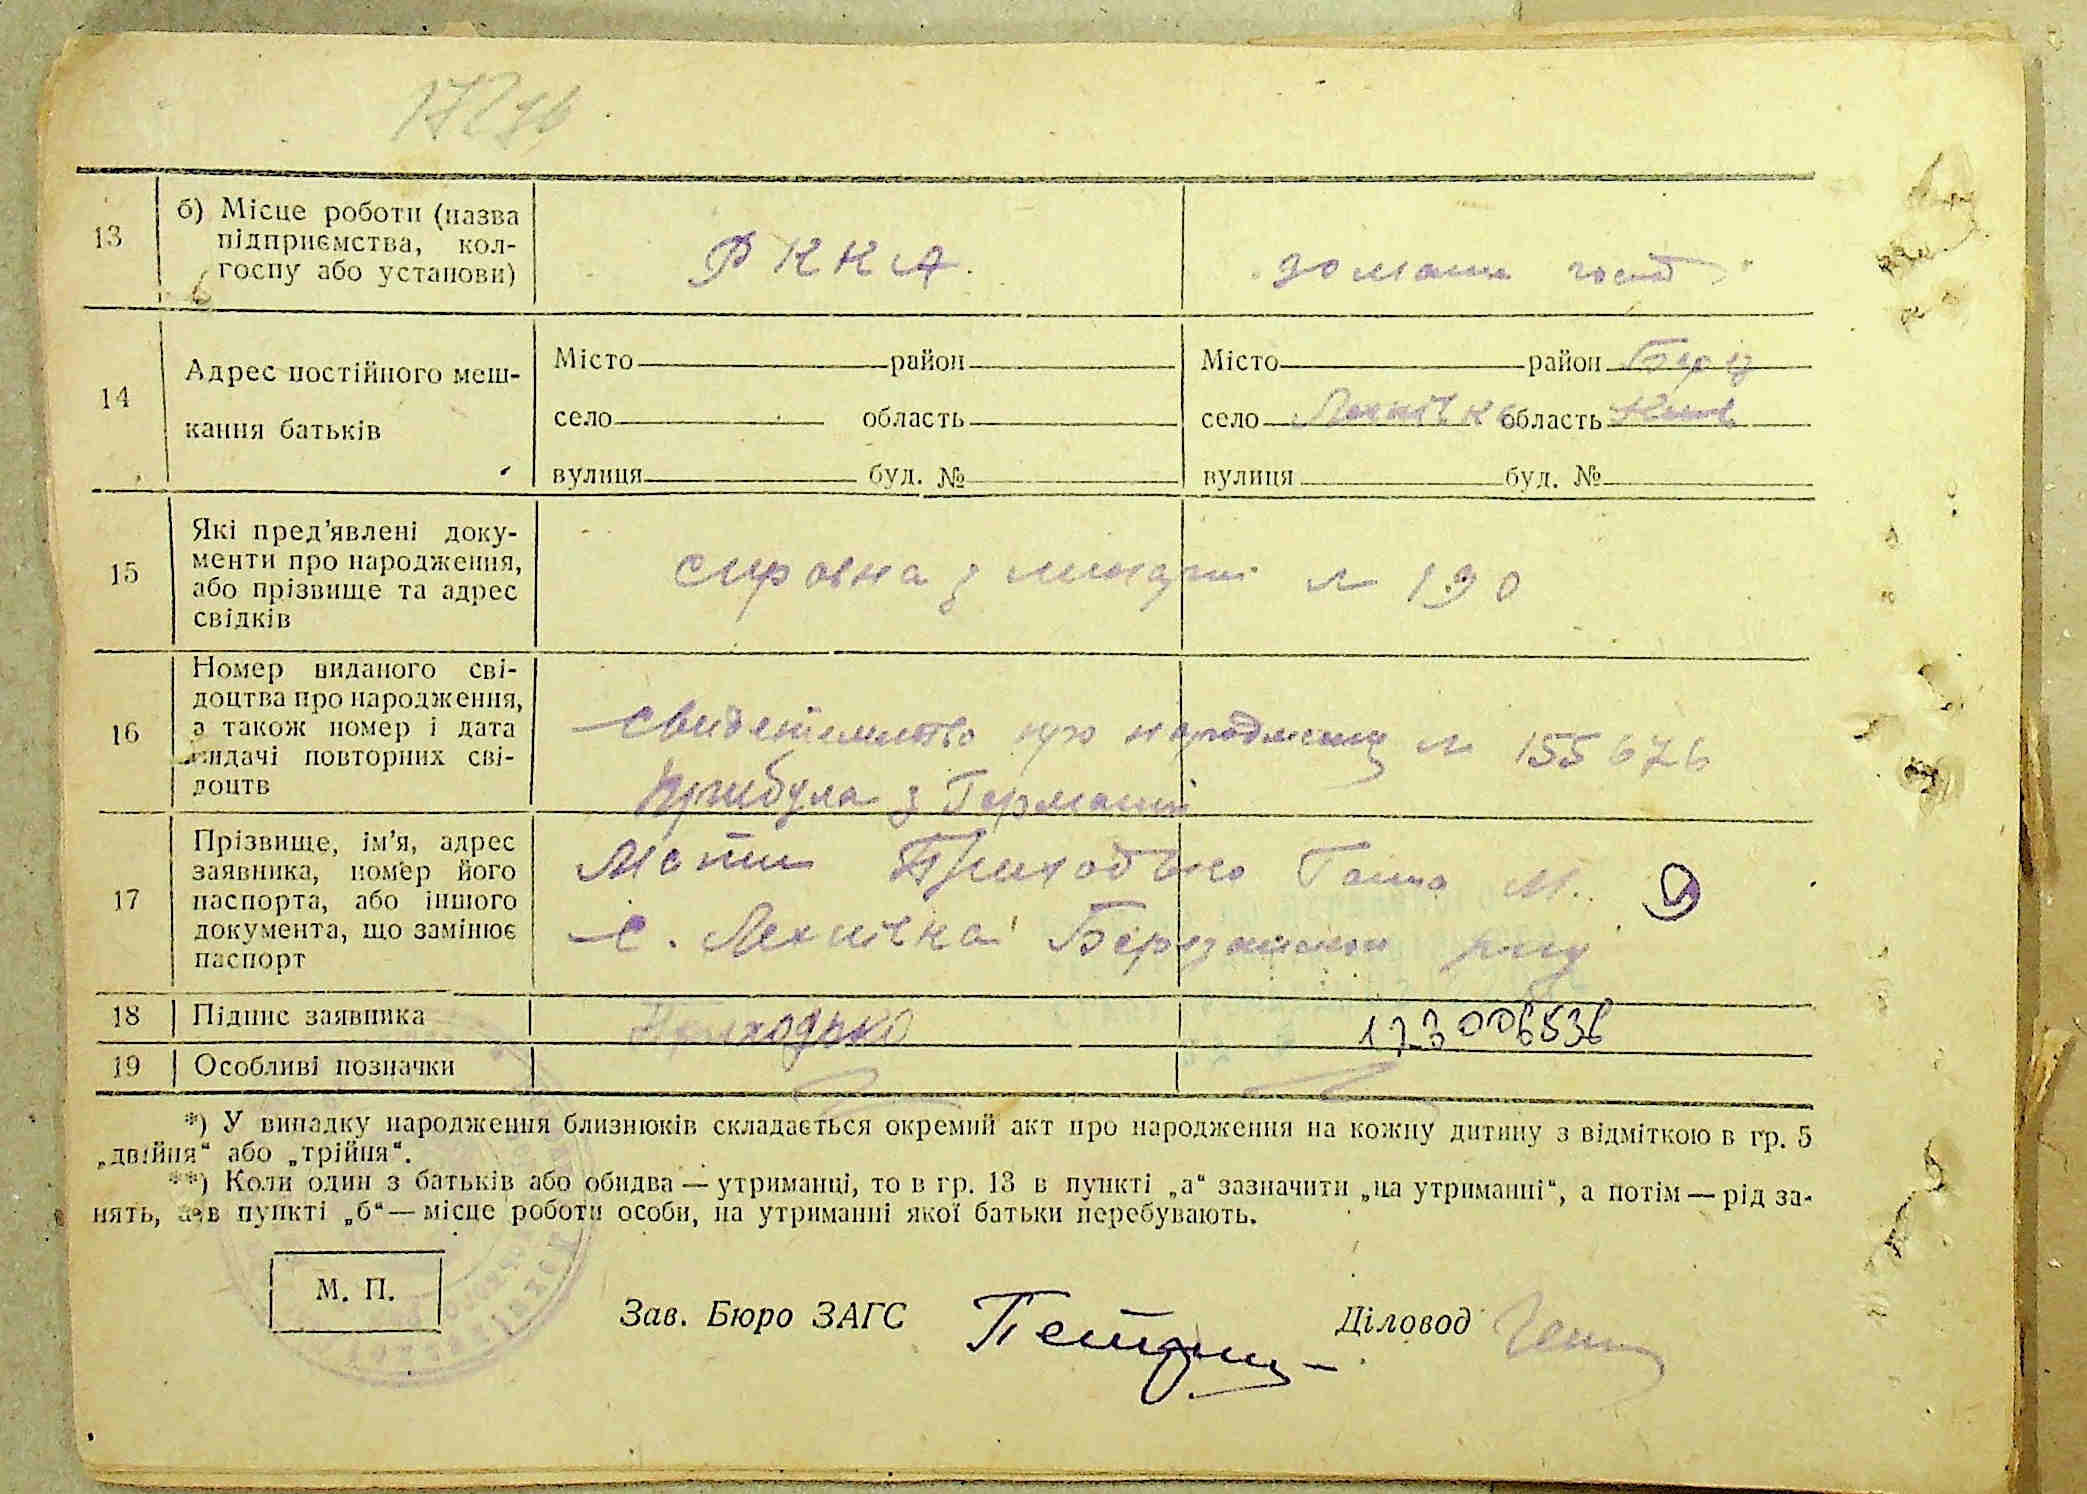 13
б) Місце роботи (назва
підприємства, кол-
госпу або установи)
РККА.
домашн госп
14
Адрес постійного меш-
кання батьків
Місто район
село область
вулиця буд. №
Місто район Берез
село Лехнівка область Київ
вулиця буд. №
15
Які пред’явлені доку-
менти про народження,
або прізвище та адрес
свідків
№ 190
16
Номер виданого сві-
доцтва про народження,
а також номер і дата
видачі повторних сві-
доцтв
про № 155676
Прибула з Германії
17
Прізвище, ім’я, адрес
заявника, номер його
паспорта, або іншого
документа, що замінює
паспорт
Мати Приходько Ганна М.
с. Лехнівка Березанськ р-ну
18
Підпис заявника
Приходько
173006536
19
Особливі позначки
*) У випадку народження близнюків складається окремий акт про народження на кожну дитину з відміткою в гр. 5
„двійня“ або „трійня“.
**) Коли один з батьків або обидва — утриманці, то в гр. 13 в пункті „а“ зазначити „на утриманні“, а потім — рід за-
нять, а в пункті „б“ — місце роботи особи, на утриманні якої батьки перебувають.
М. П.
Зав. Бюро ЗАГС
Діловод